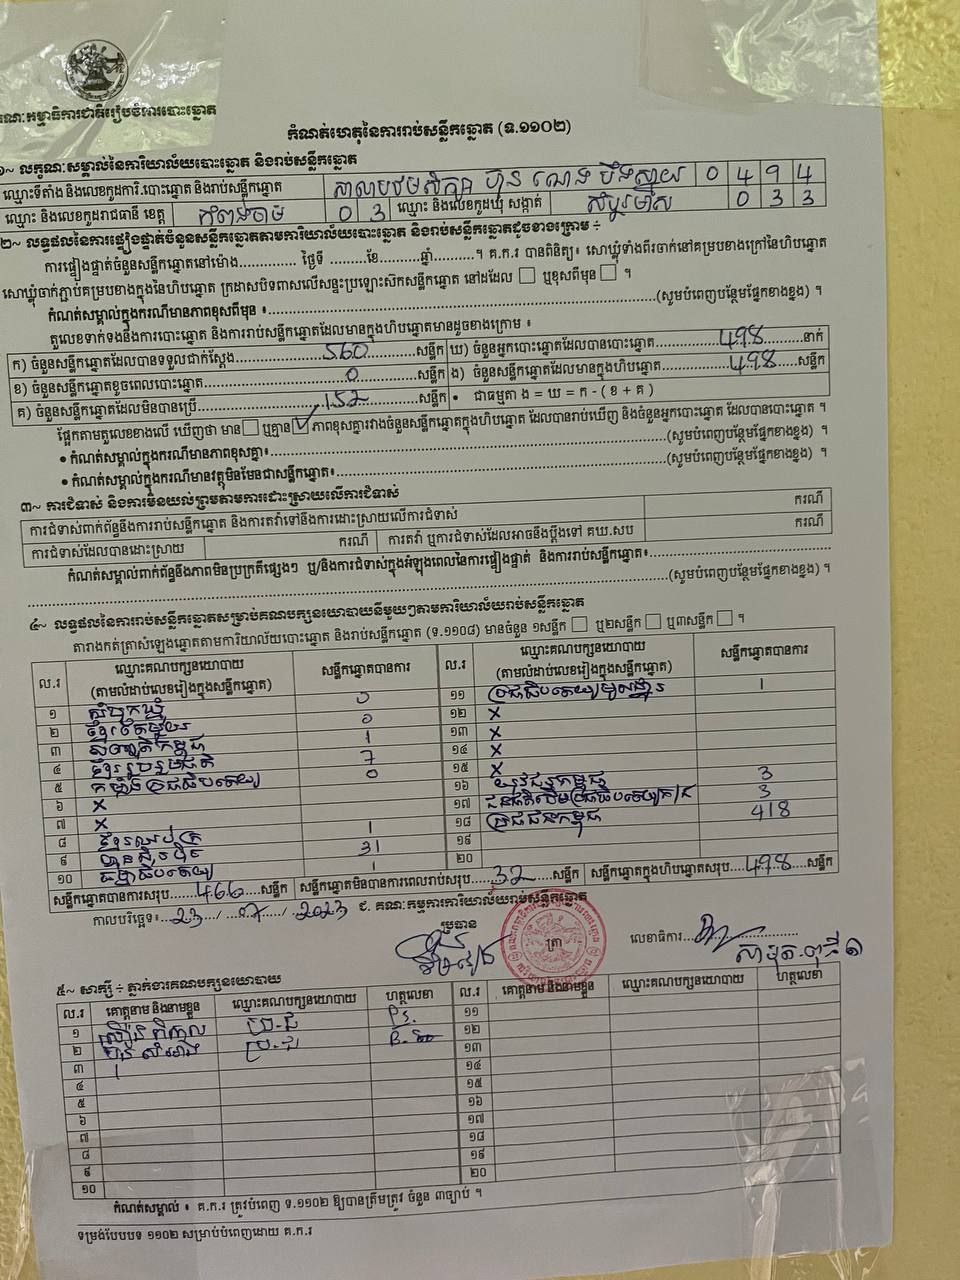 គណៈកម្មាធិការជាតិរៀបចំការបោះឆ្នោត
កំណត់ហេតុនៃការរាប់សន្លឹកឆ្នោត (ទ.១១០២)
១~ លក្ខណៈសម្គាល់នៃការិយាល័យបោះឆ្នោត និងរាប់សន្លឹកឆ្នោត
ឈ្មោះទីតាំង និងលេខកូដការិ.បោះឆ្នោត និងរាប់សន្លឹកឆ្នោត សាលាបឋមសិក្សា ហ៊ុន សែន បឹងស្នាយ 0 4 9 4
ឈ្មោះ និងលេខកូដរាជធានី ខេត្ត កំពង់ចាម 0 3 ឈ្មោះ និងលេខកូដឃុំ សង្កាត់ សំបួរមាស 0 3 3
២~ លទ្ធផលនៃការផ្ទៀងផ្ទាត់ចំនួនសន្លឹកឆ្នោតតាមការិយាល័យបោះឆ្នោត និងរាប់សន្លឹកឆ្នោតដូចខាងក្រោម ÷
ការផ្ទៀងផ្ទាត់ចំនួនសន្លឹកឆ្នោតនៅម៉ោង.............. ថ្ងៃទី .........ខែ..........ឆ្នាំ..........។ គ.ក.រ បានពិនិត្យ៖ សោឃ្លុំទាំងពីរចាក់នៅគម្របខាងក្រៅនៃហិបឆ្នោត
សោឃ្លុំចាក់ភ្ជាប់គម្របខាងក្នុងនៃហិបឆ្នោត ក្រដាសបិទពាសលើសន្ទះប្រឡោះស៊កសន្លឹកឆ្នោត នៅដដែល ☐ ឬខុសពីមុន ☐ ។
កំណត់សម្គាល់ក្នុងករណីមានភាពខុសពីមុន ៖..........(សូមបំពេញបន្ថែមផ្នែកខាងខ្នង) ។
តួលេខទាក់ទងនឹងការបោះឆ្នោត និងការរាប់សន្លឹកឆ្នោតដែលមានក្នុងហិបឆ្នោតមានដូចខាងក្រោម ៖
ក) ចំនួនសន្លឹកឆ្នោតដែលបានទទួលជាក់ស្តែង.....560.....សន្លឹក ឃ) ចំនួនអ្នកបោះឆ្នោតដែលបានបោះឆ្នោត.....498.....នាក់
ខ) ចំនួនសន្លឹកឆ្នោតខូចពេលបោះឆ្នោត.....0.....សន្លឹក ង) ចំនួនសន្លឹកឆ្នោតដែលមានក្នុងហិបឆ្នោត.....498.....សន្លឹក
គ) ចំនួនសន្លឹកឆ្នោតដែលមិនបានប្រើ.....152.....សន្លឹក • ជាធម្មតា ង = ឃ = ក - ( ខ + គ )
ផ្អែកតាមតួលេខខាងលើ ឃើញថា មាន☐ ឬគ្មាន☑ ភាពខុសគ្នារវាងចំនួនសន្លឹកឆ្នោតក្នុងហិបឆ្នោត ដែលបានរាប់ឃើញ និងចំនួនអ្នកបោះឆ្នោត ដែលបានបោះឆ្នោត ។
• កំណត់សម្គាល់ក្នុងករណីមានភាពខុសគ្នា៖..........(សូមបំពេញបន្ថែមផ្នែកខាងខ្នង) ។
• កំណត់សម្គាល់ក្នុងករណីមានវត្ថុមិនមែនជាសន្លឹកឆ្នោត៖..........(សូមបំពេញបន្ថែមផ្នែកខាងខ្នង) ។
៣~ ការជំទាស់ និងការមិនយល់ព្រមតាមការដោះស្រាយលើការជំទាស់
ការជំទាស់ពាក់ព័ន្ធនឹងការរាប់សន្លឹកឆ្នោត និងការតវ៉ាទៅនឹងការដោះស្រាយលើការជំទាស់ ករណី
ការជំទាស់ដែលបានដោះស្រាយ ករណី ការតវ៉ា ឬការជំទាស់ដែលអាចនឹងប្តឹងទៅ គឃ.សប ករណី
កំណត់សម្គាល់ពាក់ព័ន្ធនឹងភាពមិនប្រក្រតីផ្សេងៗ ឬ/និងការជំទាស់ក្នុងអំឡុងពេលនៃការផ្ទៀងផ្ទាត់ និងការរាប់សន្លឹកឆ្នោត៖..........
..........(សូមបំពេញបន្ថែមផ្នែកខាងខ្នង) ។
៤~ លទ្ធផលនៃការរាប់សន្លឹកឆ្នោតសម្រាប់គណបក្សនយោបាយនីមួយៗតាមការិយាល័យរាប់សន្លឹកឆ្នោត
តារាងកត់ត្រាសំឡេងឆ្នោតតាមការិយាល័យបោះឆ្នោត និងរាប់សន្លឹកឆ្នោត (ទ.១១០៨) មានចំនួន ១សន្លឹក ☐ ឬ២សន្លឹក ☐ ឬ៣សន្លឹក ☐ ។
ល.រ ឈ្មោះគណបក្សនយោបាយ (តាមលំដាប់លេខរៀងក្នុងសន្លឹកឆ្នោត) សន្លឹកឆ្នោតបានការ ល.រ ឈ្មោះគណបក្សនយោបាយ (តាមលំដាប់លេខរៀងក្នុងសន្លឹកឆ្នោត) សន្លឹកឆ្នោតបានការ
១ សំបុកឃ្មុំ 0 ១១ ប្រជាធិបតេយ្យមូលដ្ឋាន 1
២ ខ្មែរតែមួយ 0 ១២ x
៣ សញ្ជាតិកម្ពុជា 1 ១៣ x
៤ ខ្មែររួបរួមជាតិ 7 ១៤ x
៥ កម្លាំងប្រជាធិបតេយ្យ 0 ១៥ x
៦ x ១៦ យុវជនកម្ពុជា 3
៧ x ១៧ ជនជាតិដើមប្រជាធិបតេយ្យក/ជ 3
៨ ខ្មែរឈប់ក្រ 1 ១៨ ប្រជាជនកម្ពុជា 418
៩ ហ៊្វុនស៊ិនប៉ិច 31 ១៩
១០ ធម្មាធិបតេយ្យ 1 ២០
សន្លឹកឆ្នោតបានការសរុប.....466.....សន្លឹក សន្លឹកឆ្នោតមិនបានការពេលរាប់សរុប.....32.....សន្លឹក សន្លឹកឆ្នោតក្នុងហិបឆ្នោតសរុប.....498.....សន្លឹក
កាលបរិច្ឆេទ៖..23../..07../..2023 ជ. គណៈកម្មការការិយាល័យរាប់សន្លឹកឆ្នោត
ប្រធាន ត្រា លេខាធិការ..........
៥~ សាក្សី ÷ ភ្នាក់ងារគណបក្សនយោបាយ
ល.រ គោត្តនាម និងនាមខ្លួន ឈ្មោះគណបក្សនយោបាយ ហត្ថលេខា ល.រ គោត្តនាម និងនាមខ្លួន ឈ្មោះគណបក្សនយោបាយ ហត្ថលេខា
១ ប្រ.ជ ១១
២ ប្រ.ជ ១២
៣ ១៣
៤ ១៤
៥ ១៥
៦ ១៦
៧ ១៧
៨ ១៨
៩ ១៩
១០ ២០
កំណត់សម្គាល់ ៖ គ.ក.រ ត្រូវបំពេញ ទ.១១០២ ឱ្យបានត្រឹមត្រូវ ចំនួន ៣ច្បាប់ ។
ទម្រង់បែបបទ ១១០២ សម្រាប់បំពេញដោយ គ.ក.រ